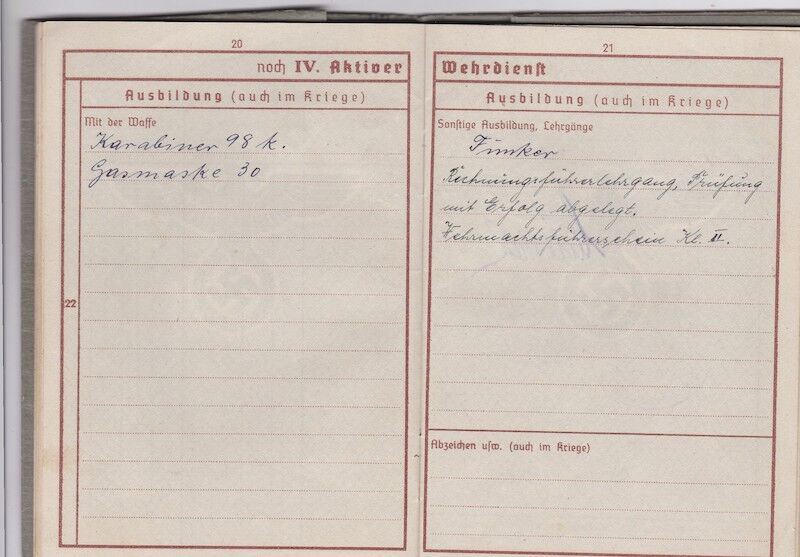 20
noch IV. Aktiver
Ausbildung (auch im Kriege)
Mit der Waffe
Karabiner 98 k.
Gasmaske 30
22
21
Wehrdienst
Ausbildung (auch im Kriege)
Sonstige Ausbildung, Lehrgänge
Funker
Rechnungsführerlehrgang, Prüfung
mit Erfolg abgelegt.
Wehrmachtsführerschein Kl. II.
Abzeichen usw. (auch im Kriege)